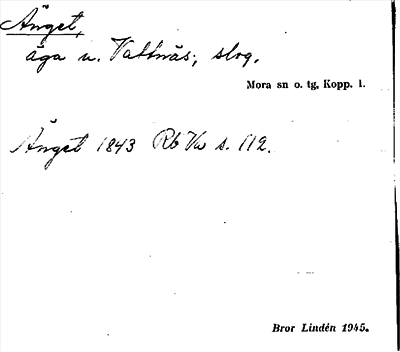 Änget,
äga u. Vattnäs; slog.
Mora sn o. tg, Kopp. l.
Änget 1843 Rb Va s. 112.
Bror Lindén 1945.